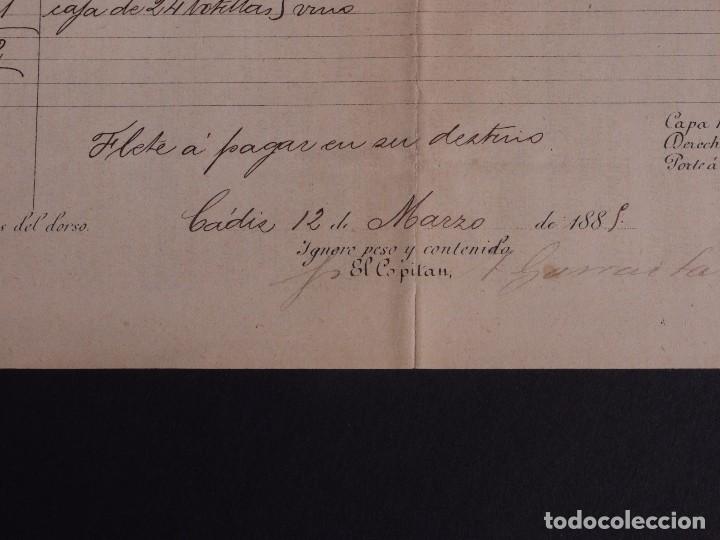 1 caja de 24 botellas} vino
2
Flete á pagar en su destino
Capa
Derech
Porte á
s del dorso.
Cádiz 12 de Marzo de 1885.
Ignoro peso y contenido,
El Capitan,
todocoleccion.net